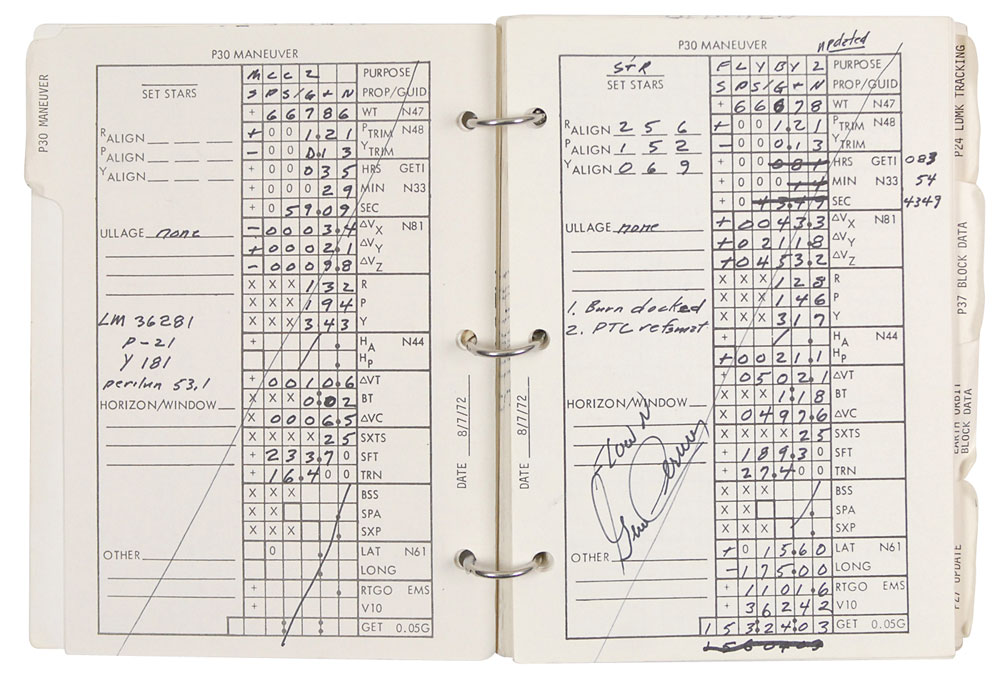 P30 MANEUVER
P30 MANEUVER
SET STARS
M C C 2 PURPOSE
S P S / G + N PROP/GUID
+ 6 6 7 8 6 WT N47
R ALIGN
+ 0 0 1.2 1 P TRIM N48
P ALIGN
- 0 0 0.1 3 Y TRIM
Y ALIGN
+ 0 0 0 3 5 HRS GETI
+ 0 0 0 2 9 MIN N33
+ 0 5 9.0 9 SEC
ULLAGE none
- 0 0 0 3.4 ΔVX N81
+ 0 0 0 2.1 ΔVY
- 0 0 0 9.8 ΔVZ
X X X 1 3 2 R
X X X 1 9 4 P
X X X 3 4 3 Y
LM 36281
P-21
Y 181
perilun 53.1
+ HA N44
HP
+ 0 0 1 0.6 ΔVT
X X X 0:0 2 BT
HORIZON/WINDOW
0 0 0 6.5 ΔVC
X X X X 2 5 SXTS
+ 2 3 3.7 0 SFT
+ 1 6.4 0 0 TRN
X X X BSS
X X SPA
X X X SXP
OTHER
0 LAT N61
LONG
+ RTGO EMS
+ V10
GET 0.05G
DATE 8/7/72
P30 MANEUVER
updated
S+R
SET STARS
F L Y B Y 2 PURPOSE
S P S / G + N PROP/GUID
+ 6 6 6 7 8 WT N47
R ALIGN 2 5 6
+ 0 0 1.2 1 P TRIM N48
P ALIGN 1 5 2
- 0 0 0.1 3 Y TRIM
Y ALIGN 0 6 9
+ 0 0 0 8 1 HRS GETI 083
+ 0 0 0 1 4 MIN N33 54
+ 0 4 3.4 9 SEC 4349
ULLAGE none
+ 0 0 4 3.3 ΔVX N81
+ 0 2 1 1.8 ΔVY
+ 0 4 5 3.2 ΔVZ
X X X 1 2 8 R
X X X 1 4 6 P
X X X 3 1 7 Y
1. Burn docked
2. PTC refsmat
+ HA N44
+ 0 0 2 1.1 HP
+ 0 5 0 2.1 ΔVT
X X X 1:1 8 BT
HORIZON/WINDOW
X 0 4 9 7.6 ΔVC
X X X X 2 5 SXTS
+ 1 8 9.3 0 SFT
+ 2 7.4 0 0 TRN
Flown
Gene Cernan
X X X BSS
X X SPA
X X X SXP
OTHER
+ 0 1 5.6 0 LAT N61
- 1 7 5.0 0 LONG
+ 1 1 0 1.6 RTGO EMS
+ 3 6 2 4 2 V10
1 5 3:2 4:0 3 GET 0.05G
DATE 8/7/72
P24 LDMK TRACKING
P37 BLOCK DATA
EARTH ORBIT
BLOCK DATA
P27 UPDATE